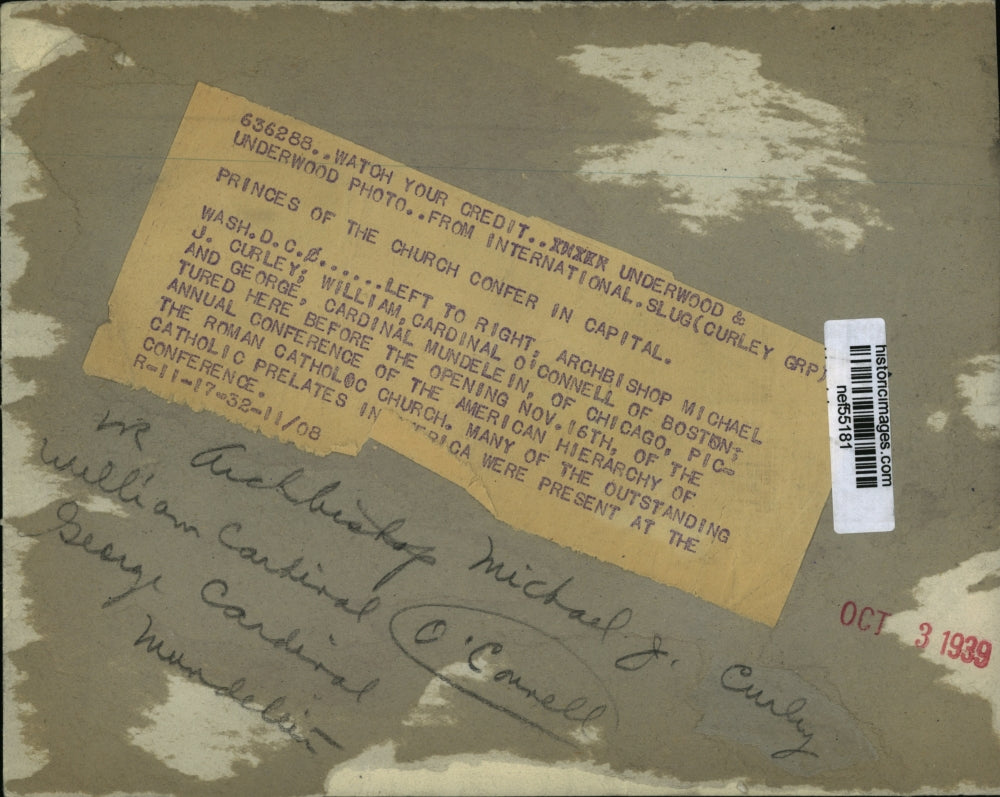 636288..WATCH YOUR CREDIT..XNXXX UNDERWOOD &
UNDERWOOD PHOTO..FROM INTERNATIONAL.SLUG(CURLEY GRP)
PRINCES OF THE CHURCH CONFER IN CAPITAL.
WASH.D.C.......LEFT TO RIGHT; ARCHBISHOP MICHAEL
J. CURLEY; WILLIAM, CARDINAL O'CONNELL OF BOSTON;
AND GEORGE, CARDINAL MUNDELEIN, OF CHICAGO, PIC-
TURED HERE BEFORE THE OPENING NOV.16TH, OF THE
ANNUAL CONFERENCE OF THE AMERICAN HIERARCHY OF
THE ROMAN CATHOLOC CHURCH. MANY OF THE OUTSTANDING
CATHOLIC PRELATES IN ERICA WERE PRESENT AT THE
CONFERENCE.
R-11-17-32-11/08
historicimages.com
nef55181
Archbishop Michael J. Curley
William Cardinal O'Connell
George Cardinal
Mundelein
OCT 3 1939